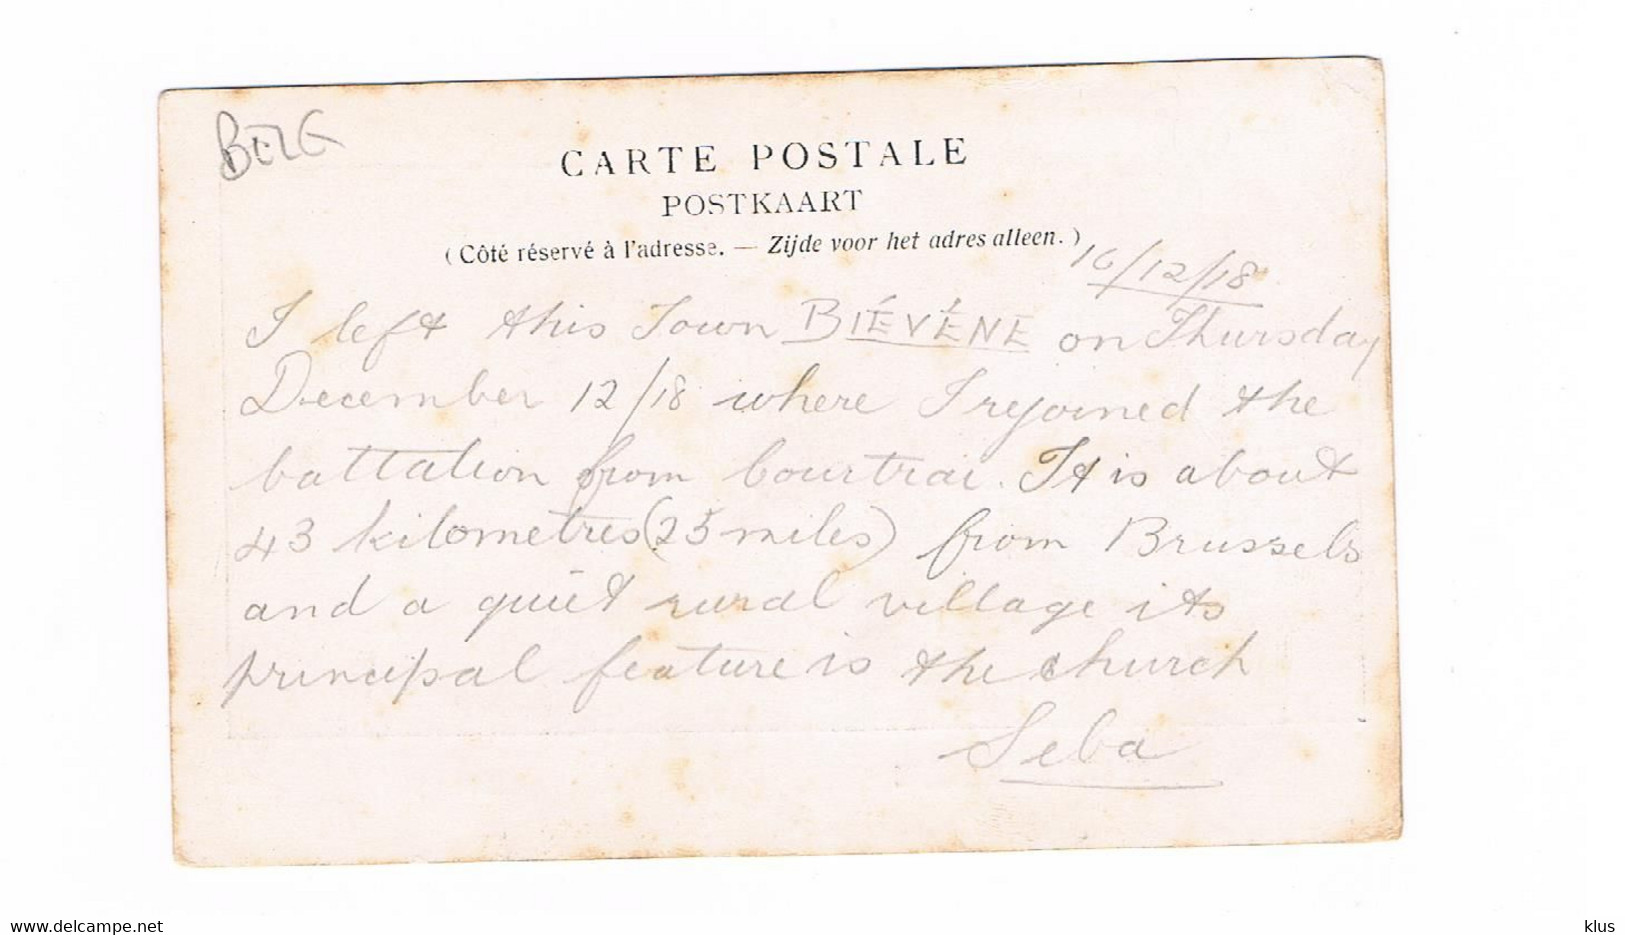 BELG
CARTE POSTALE
POSTKAART
(Côté réservé à l'adresse. — Zijde voor het adres alleen.)
16/12/18
I left this Town BIÉVÉNE on Thursday
December 12/18 where I rejoined the
battalion from Courtrai. It is about
43 kilometres (25 miles) from Brussels
and a quiet rural village its
principal feature is the church
Seba
www.delcampe.net
klus